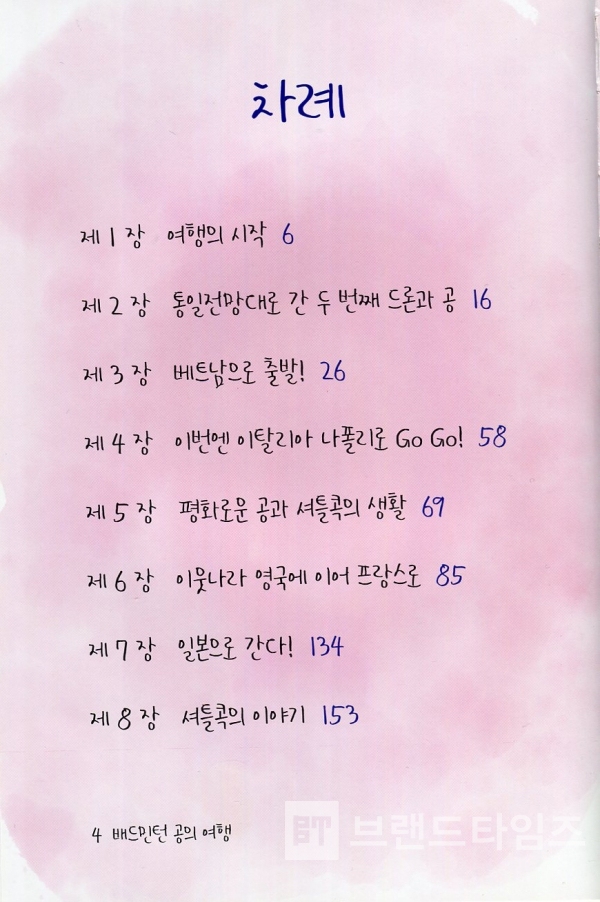 차례
제 1 장 여행의 시작 6
제 2 장 통일전망대로 간 두 번째 드론과 공 16
제 3 장 베트남으로 출발! 26
제 4 장 이번엔 이탈리아 나폴리로 Go Go! 58
제 5 장 평화로운 공과 셔틀콕의 생활 69
제 6 장 이웃나라 영국에 이어 프랑스로 85
제 7 장 일본으로 간다! 134
제 8 장 셔틀콕의 이야기 153
4 배드민턴 공의 여행
BT 브랜드타임즈